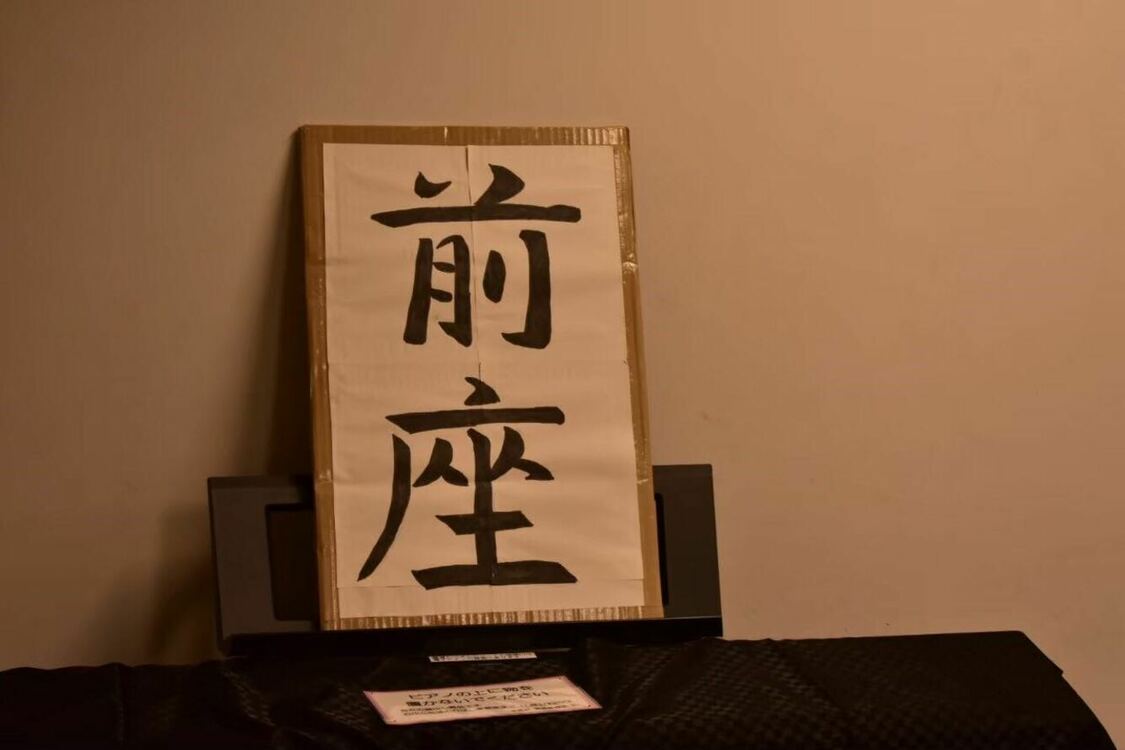 前
座
ピアノの上に物を
置かないでください